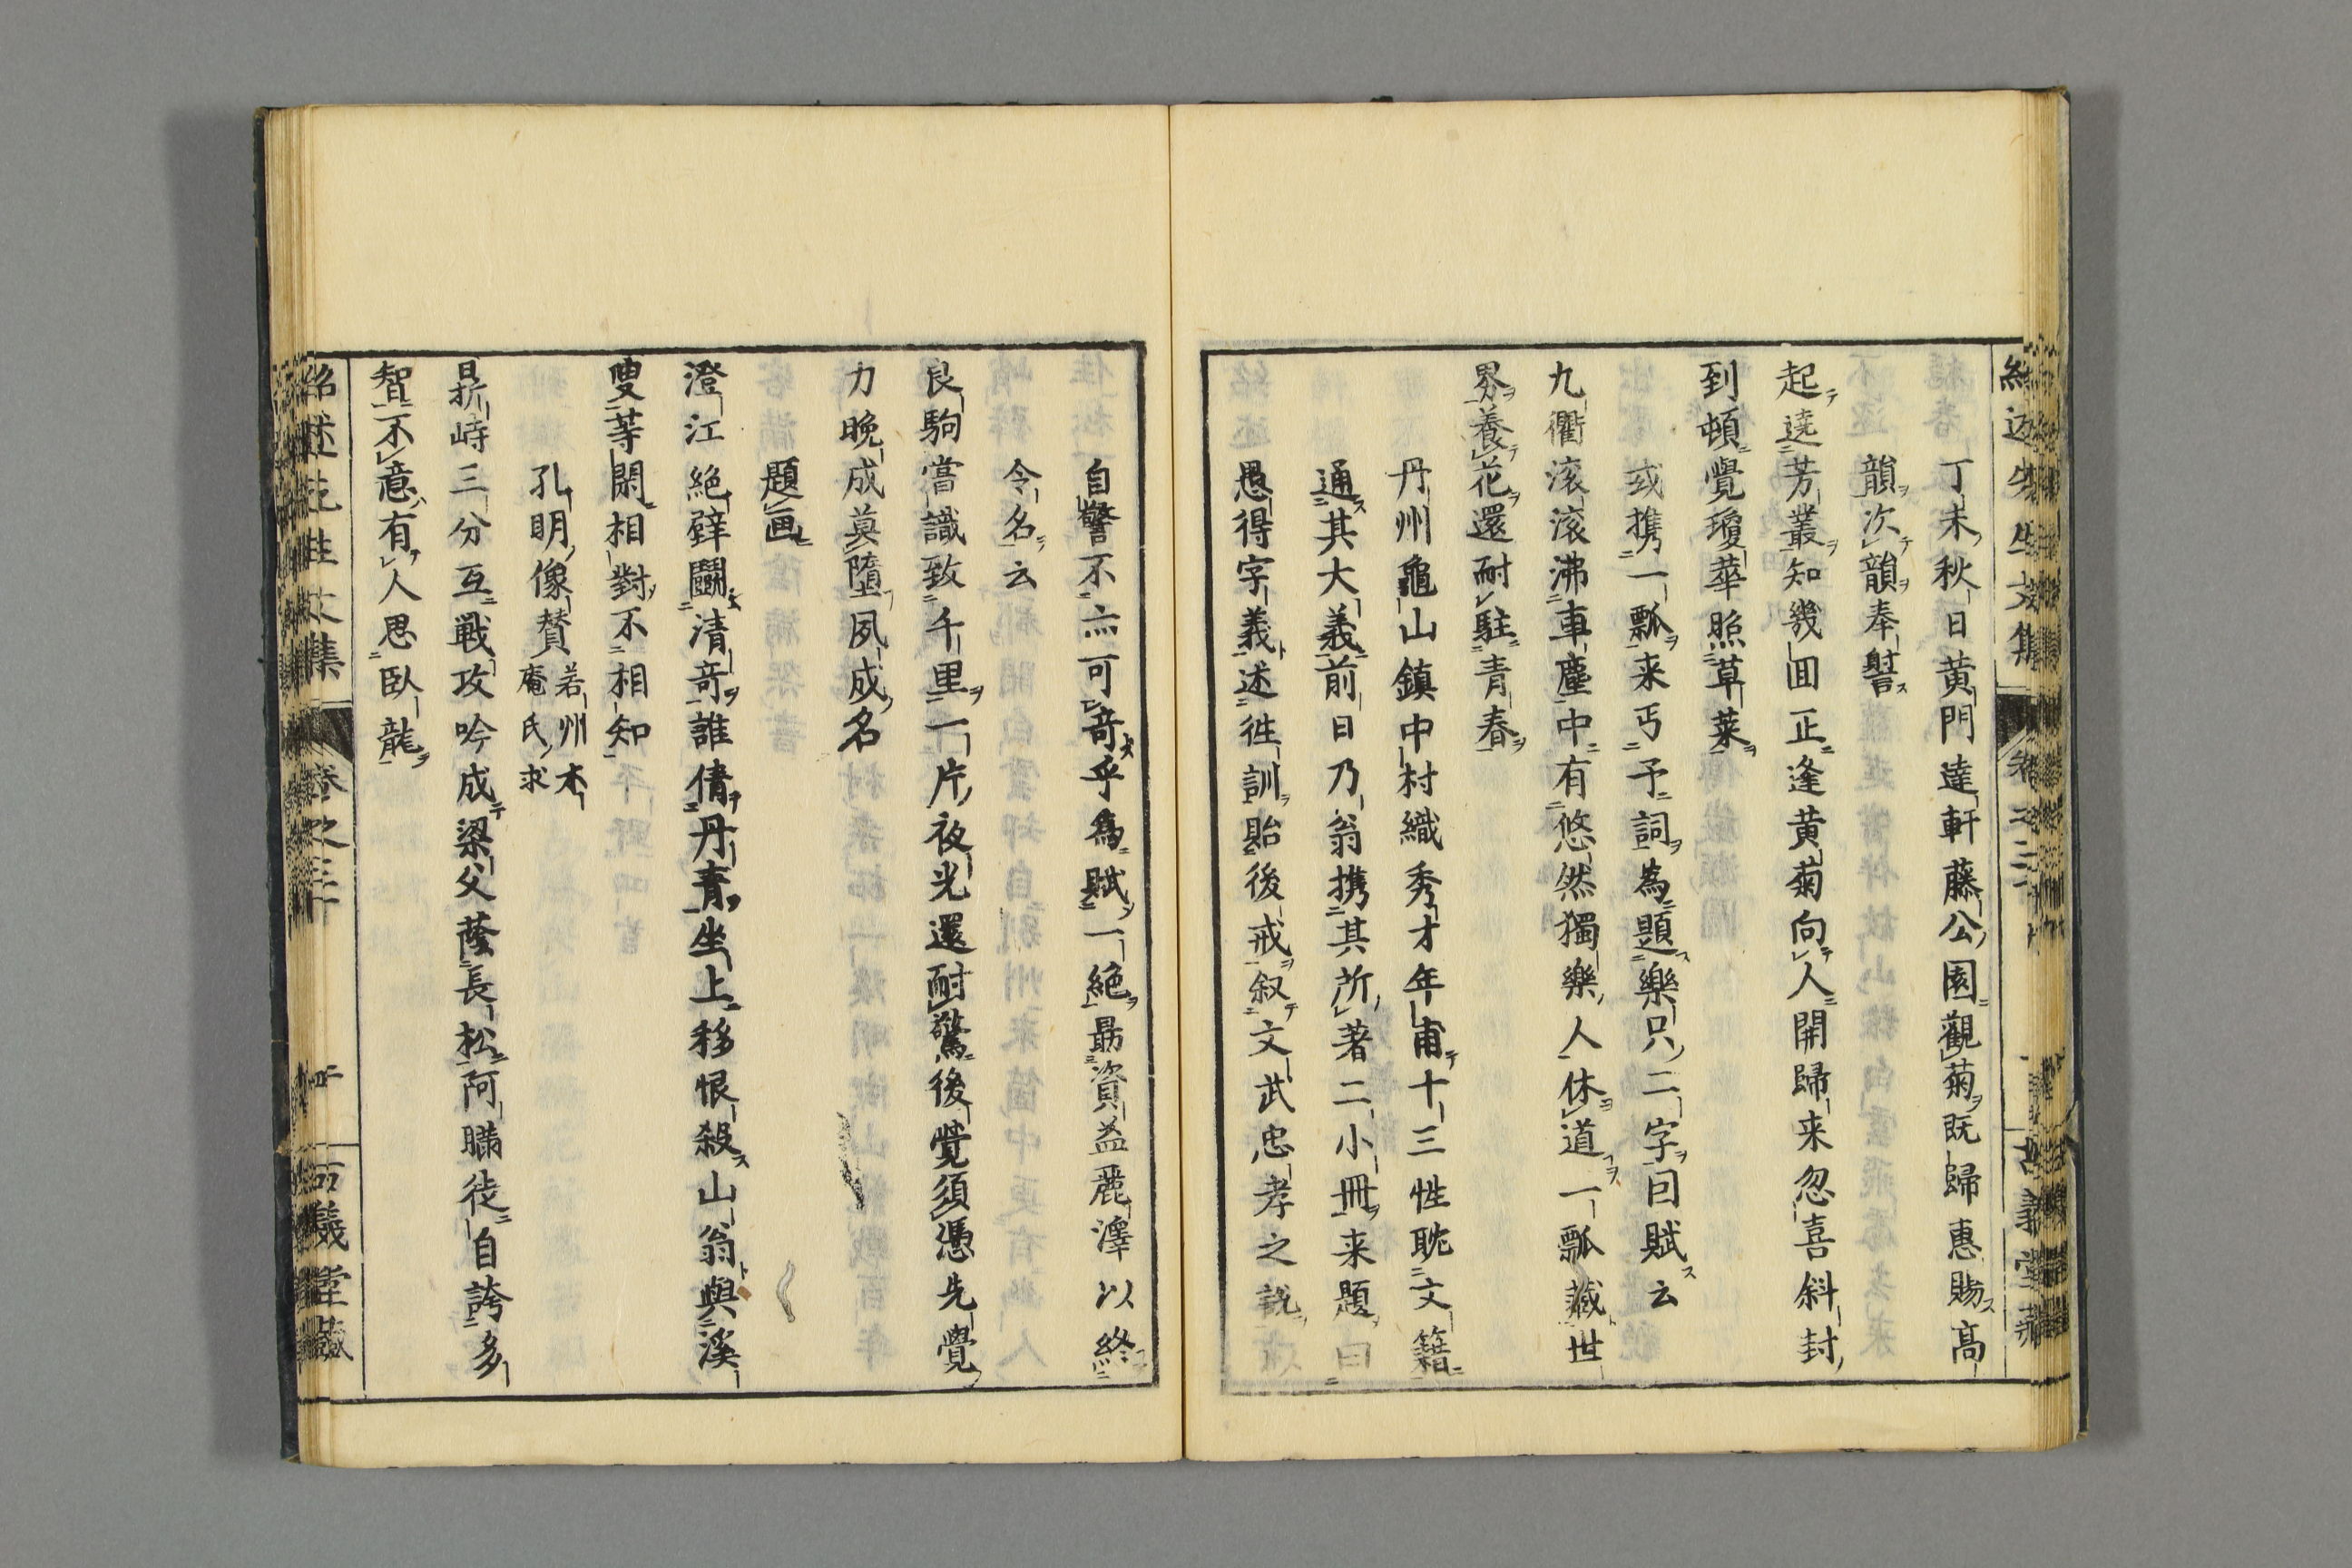 丁未秋日黄門達軒藤公園觀菊既歸惠賜高
韻次韻奉詶
起遶芳叢知幾囬正逢黄菊向人開歸来忽喜斜封
到頓覺瓊華照草莱
或携一瓢来丐予詞為題樂只二字因賦云
九衢滚滚沸車塵中有悠然獨樂人休道一瓢藏世
界養花還耐駐青春
丹州龜山鎮中村織秀才年甫十三性耽文籍
通其大義前日乃翁携其所著二小冊来題曰
愚得字義述徃訓貽後戒叙文武忠孝之説
自警不亦可竒乎為賦一絶勗資益麗澤以終
令名云
良駒當識致千里一片夜光還耐驚後覺須憑先覺
力晩成莫墮夙成名
題画
澄江絶壁鬬清竒誰倩丹青坐上移恨殺山翁與溪
叟等閑相對不相知
孔明像賛 若州木庵氏求
鼎峙三分互戦攻吟成梁父蔭長松阿瞞徒自誇多
智不意有人思臥龍
紹述先生文集 卷之三十 古義堂藏